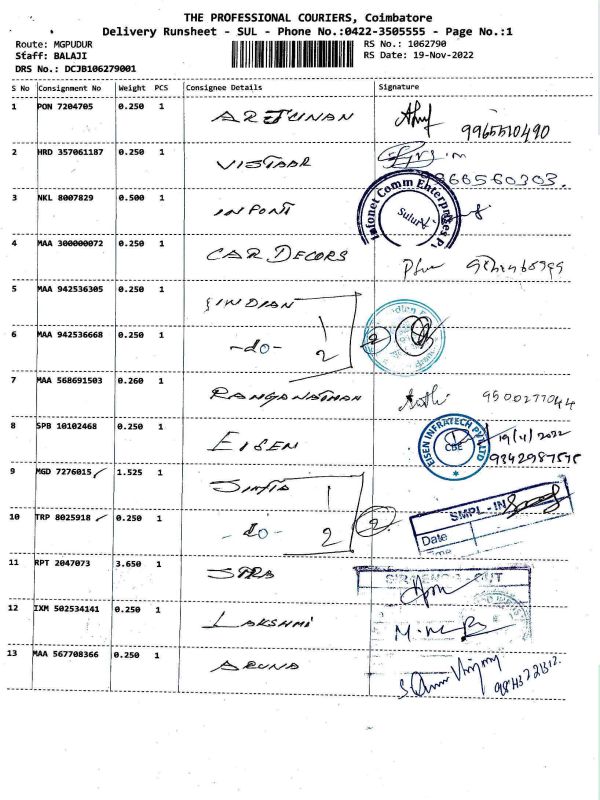 THE PROFESSIONAL COURIERS, Coimbatore
Delivery Runsheet - SUL - Phone No.:0422-3505555 - Page No.:1
Route: MGPUDUR RS No.: 1062790
Staff: BALAJI RS Date: 19-Nov-2022
DRS No.: DCJB106279001
S No Consignment No Weight PCS Consignee Details Signature
1 PON 7204705 0.250 1 ARJUNAN
9965510490
2 HRD 357061187 0.250 1 VISTAAR
3 NKL 8007829 0.500 1 INFONT
Infonet Comm Enterprises P
Sulur
4 MAA 300000072 0.250 1 CAR DECORS
5 MAA 942536305 0.250 1 INDIAN 1
6 MAA 942536668 0.250 1 -do- 2 2
7 MAA 568691503 0.260 1 RANGANATHAN 9500277044
8 SPB 10102468 0.250 1 EISEN
EISEN INFRATECH PVT LTD
CBE
19/11/2022
9 MGD 7276015 1.525 1 1
SMPL - IN
10 TRP 8025918 0.250 1 -do- 2 2
Date
Time
11 RPT 2047073 3.650 1
OUT
12 IXM 502534141 0.250 1 LAKSHMI
13 MAA 567708366 0.250 1 ARUNA